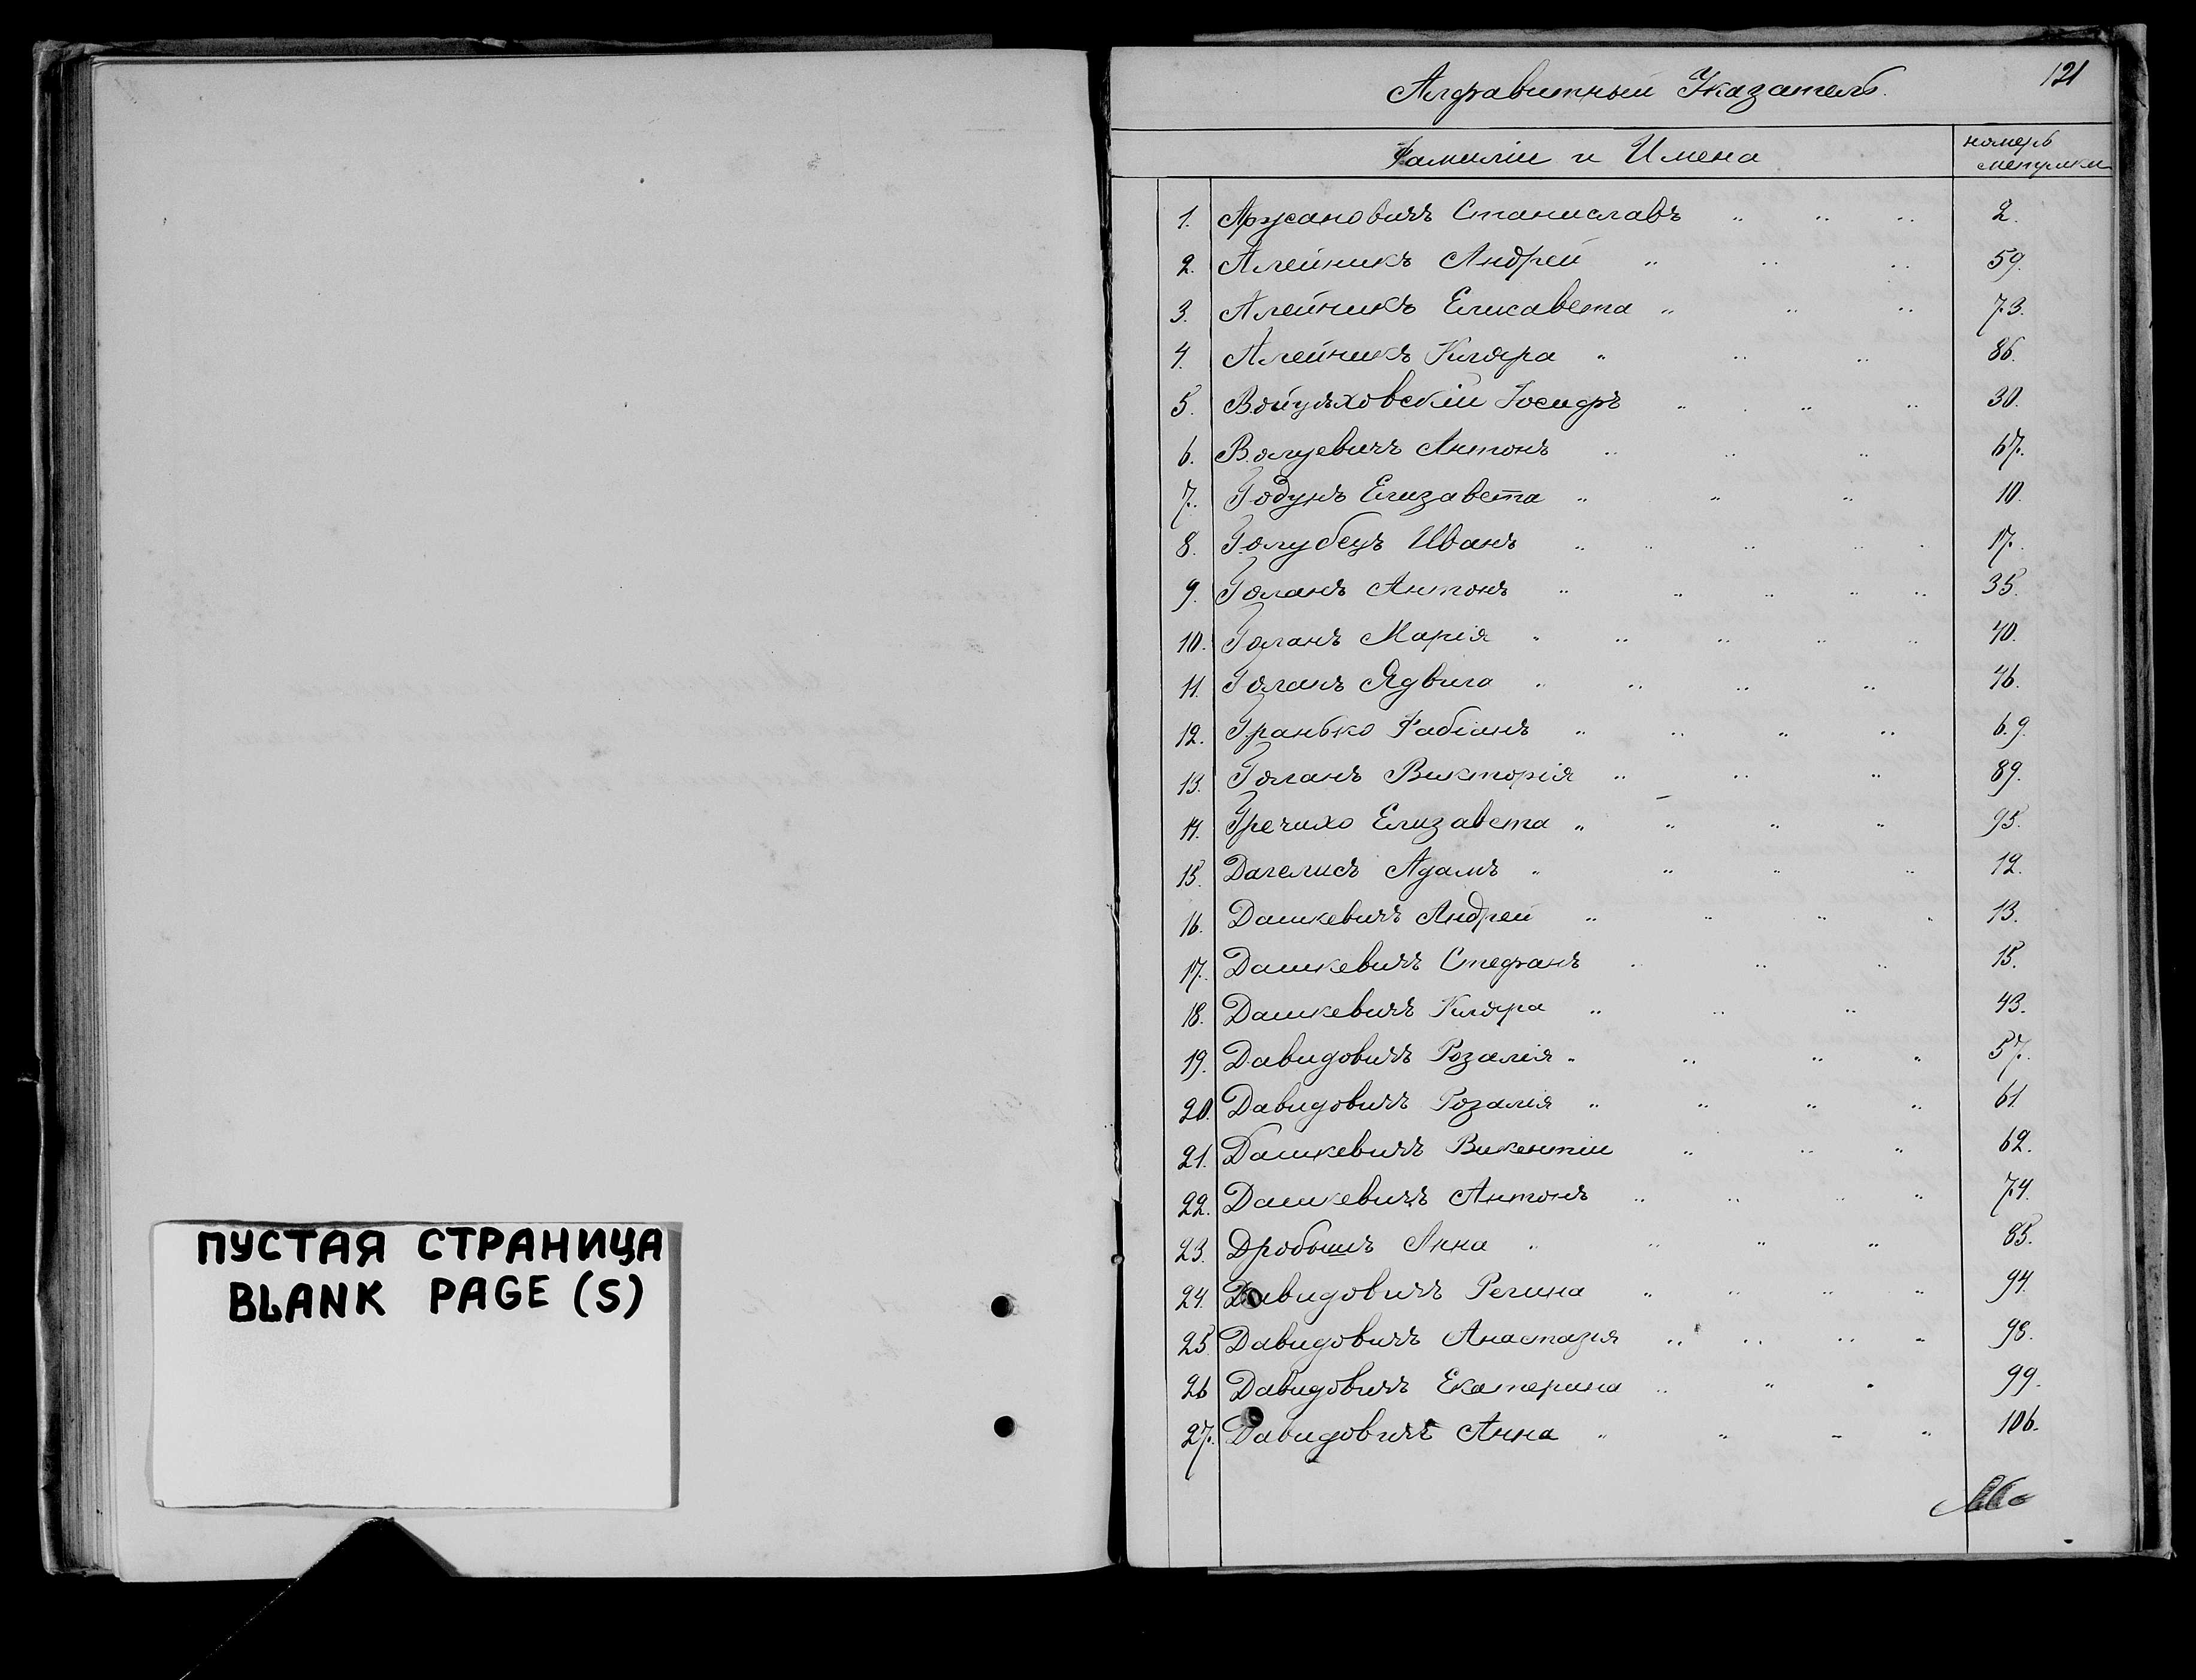 ПУСТАЯ СТРАНИЦА
BLANK PAGE (S)
121
Алфавитный Указатель.
Фамиліи и Имена
номеръ
метрики
1. Аржановичъ Станиславъ 2.
2. Алейникъ Андрей 59.
3. Алейникъ Елисавета 73.
4. Алейникъ Кляра 86.
5. Войцѣховскій Іосифъ 30.
6. Волуевичъ Антонъ 67.
7. Годунъ Елизавета 10.
8. Голубецъ Иванъ 17.
9. Голанъ Антонъ 35.
10. Голанъ Марія 40.
11. Голанъ Ядвига 46.
12. Гранько Фабіанъ 69.
13. Голанъ Викторія 89.
14. Гречихо Елизавета 95.
15. Дагелисъ Адамъ 12.
16. Дашкевичъ Андрей 13.
17. Дашкевичъ Стефанъ 15.
18. Дашкевичъ Кляра 43.
19. Давидовичъ Розалія 57.
20. Давидовичъ Розалія 61.
21. Дашкевичъ Викентій 62.
22. Дашкевичъ Антонъ 74.
23. Дробышъ Анна 85.
24. Давидовичъ Регина 94.
25. Давидовичъ Анастазія 98.
26 Давидовичъ Екатерина 99.
27. Давидовичъ Анна 106.